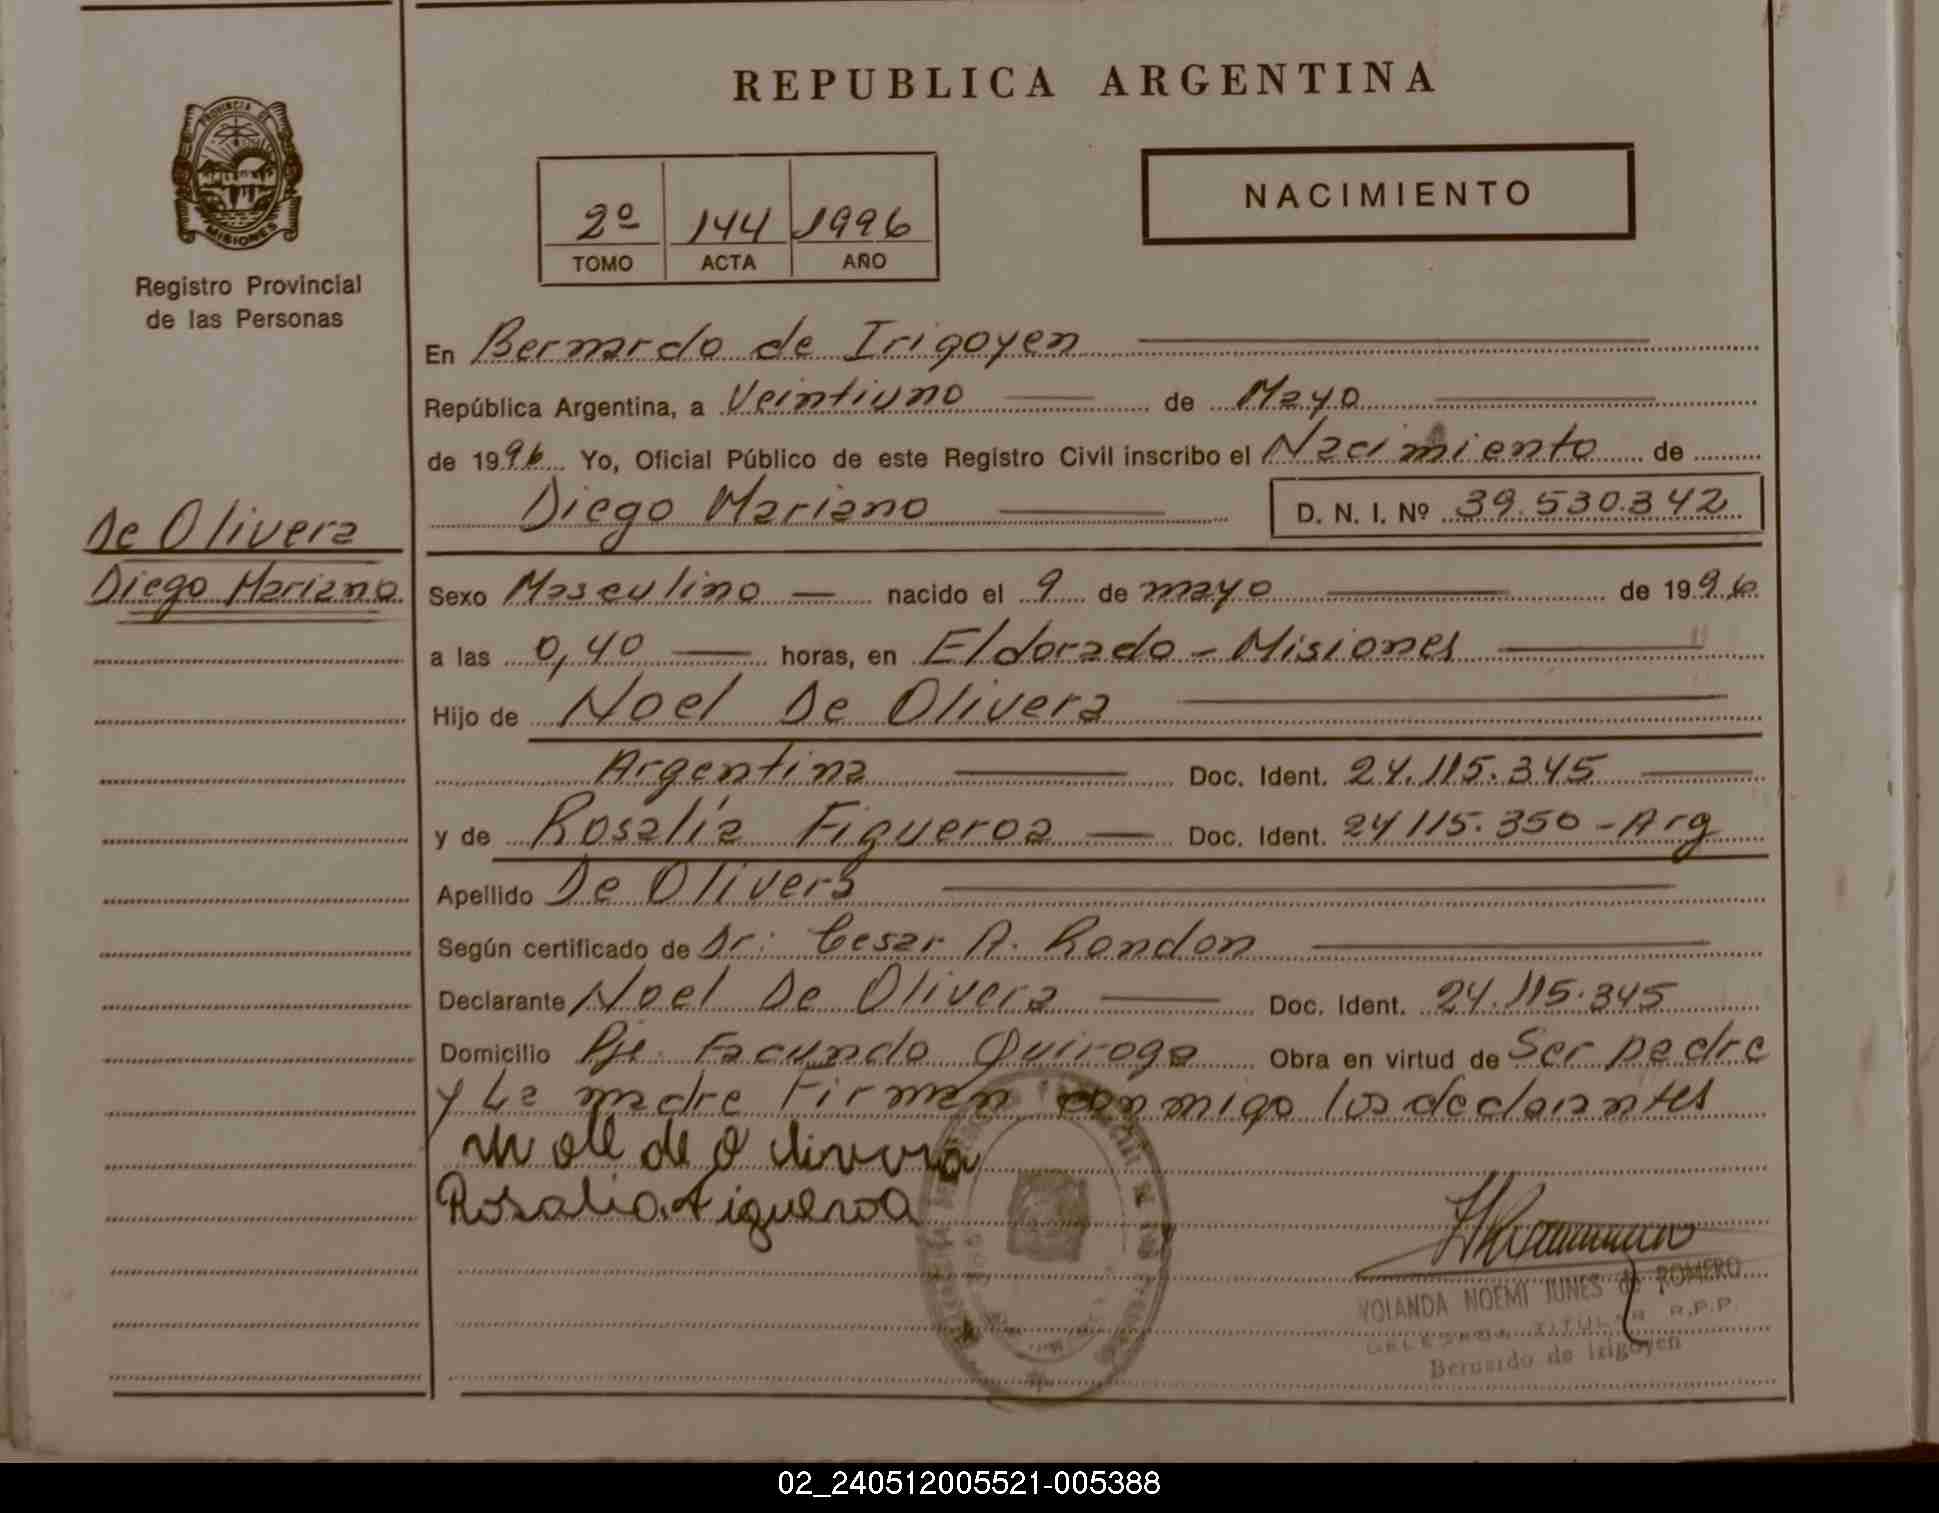 REPUBLICA ARGENTINA
PROVINCIA DE
MISIONES
Registro Provincial
de las Personas
2º 144 1996
TOMO ACTA AÑO
NACIMIENTO
En Bernardo de Irigoyen
República Argentina, a Veintiuno de Mayo
de 1996 Yo, Oficial Público de este Registro Civil inscribo el Nacimiento de
Diego Mariano D. N. I. Nº 39.530.342
De Olivera
Diego Mariano
Sexo Masculino nacido el 9 de mayo de 1996
a las 0,40 horas, en Eldorado - Misiones
Hijo de Noel De Olivera
Argentina Doc. Ident. 24.115.345
y de Rosalía Figueroa Doc. Ident. 24115.350 - Arg
Apellido De Olivera
Según certificado de Dr: Cesar A. Rondon
Declarante Noel De Olivera Doc. Ident. 24.115.345
Domicilio Pje. Facundo Quiroga Obra en virtud de Ser padre
y La madre Firman conmigo los declarantes
de Olivera
Rosalia Figueroa
YOLANDA NOEMI JUNES de ROMERO
TITULAR R.P.P.
Bernardo de Irigoyen
02_240512005521-005388